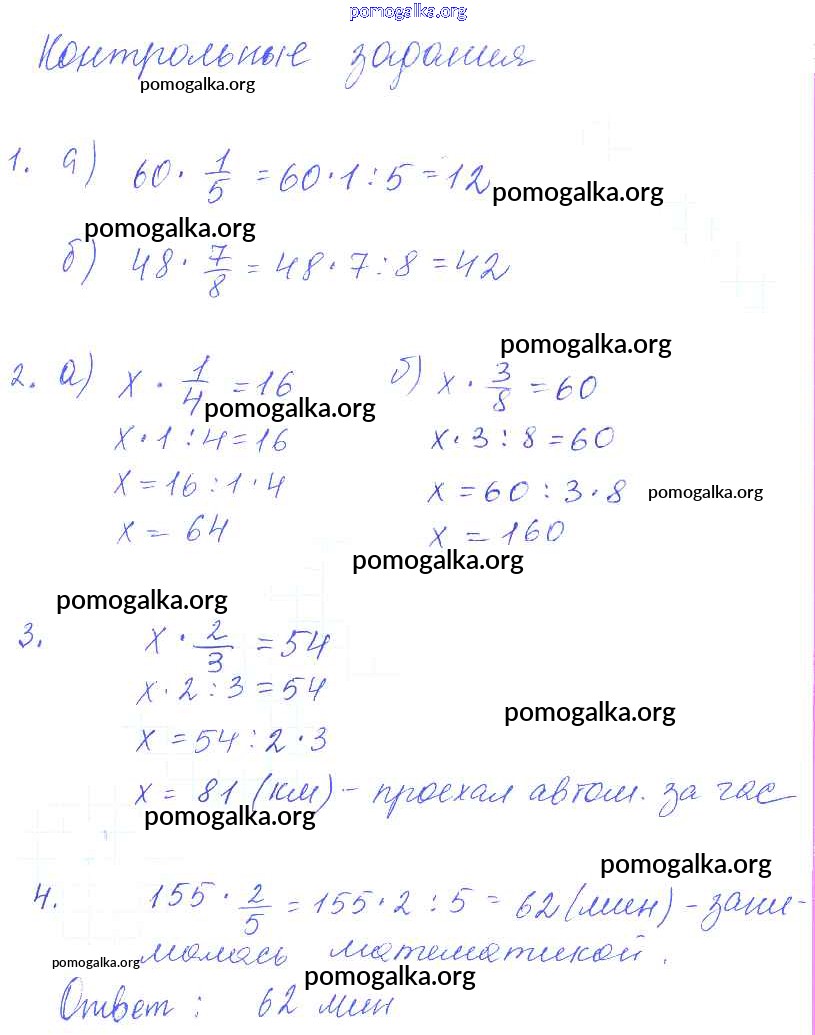 pomogalka.org
Контрольные задания
pomogalka.org
1. а) 60 · 1/5 = 60 · 1 : 5 = 12
pomogalka.org
pomogalka.org
б) 48 · 7/8 = 48 · 7 : 8 = 42
pomogalka.org
2. а) x · 1/4 = 16 б) x · 3/8 = 60
pomogalka.org
x · 1 : 4 = 16 x · 3 : 8 = 60
x = 16 : 1 · 4 x = 60 : 3 · 8 pomogalka.org
x = 64 x = 160
pomogalka.org
pomogalka.org
3. x · 2/3 = 54
x · 2 : 3 = 54
pomogalka.org
x = 54 : 2 · 3
x = 81 (км) - проехал автом. за час
pomogalka.org
pomogalka.org
4. 155 · 2/5 = 155 · 2 : 5 = 62 (мин) - зани-
малась математикой.
pomogalka.org
pomogalka.org
Ответ : 62 мин